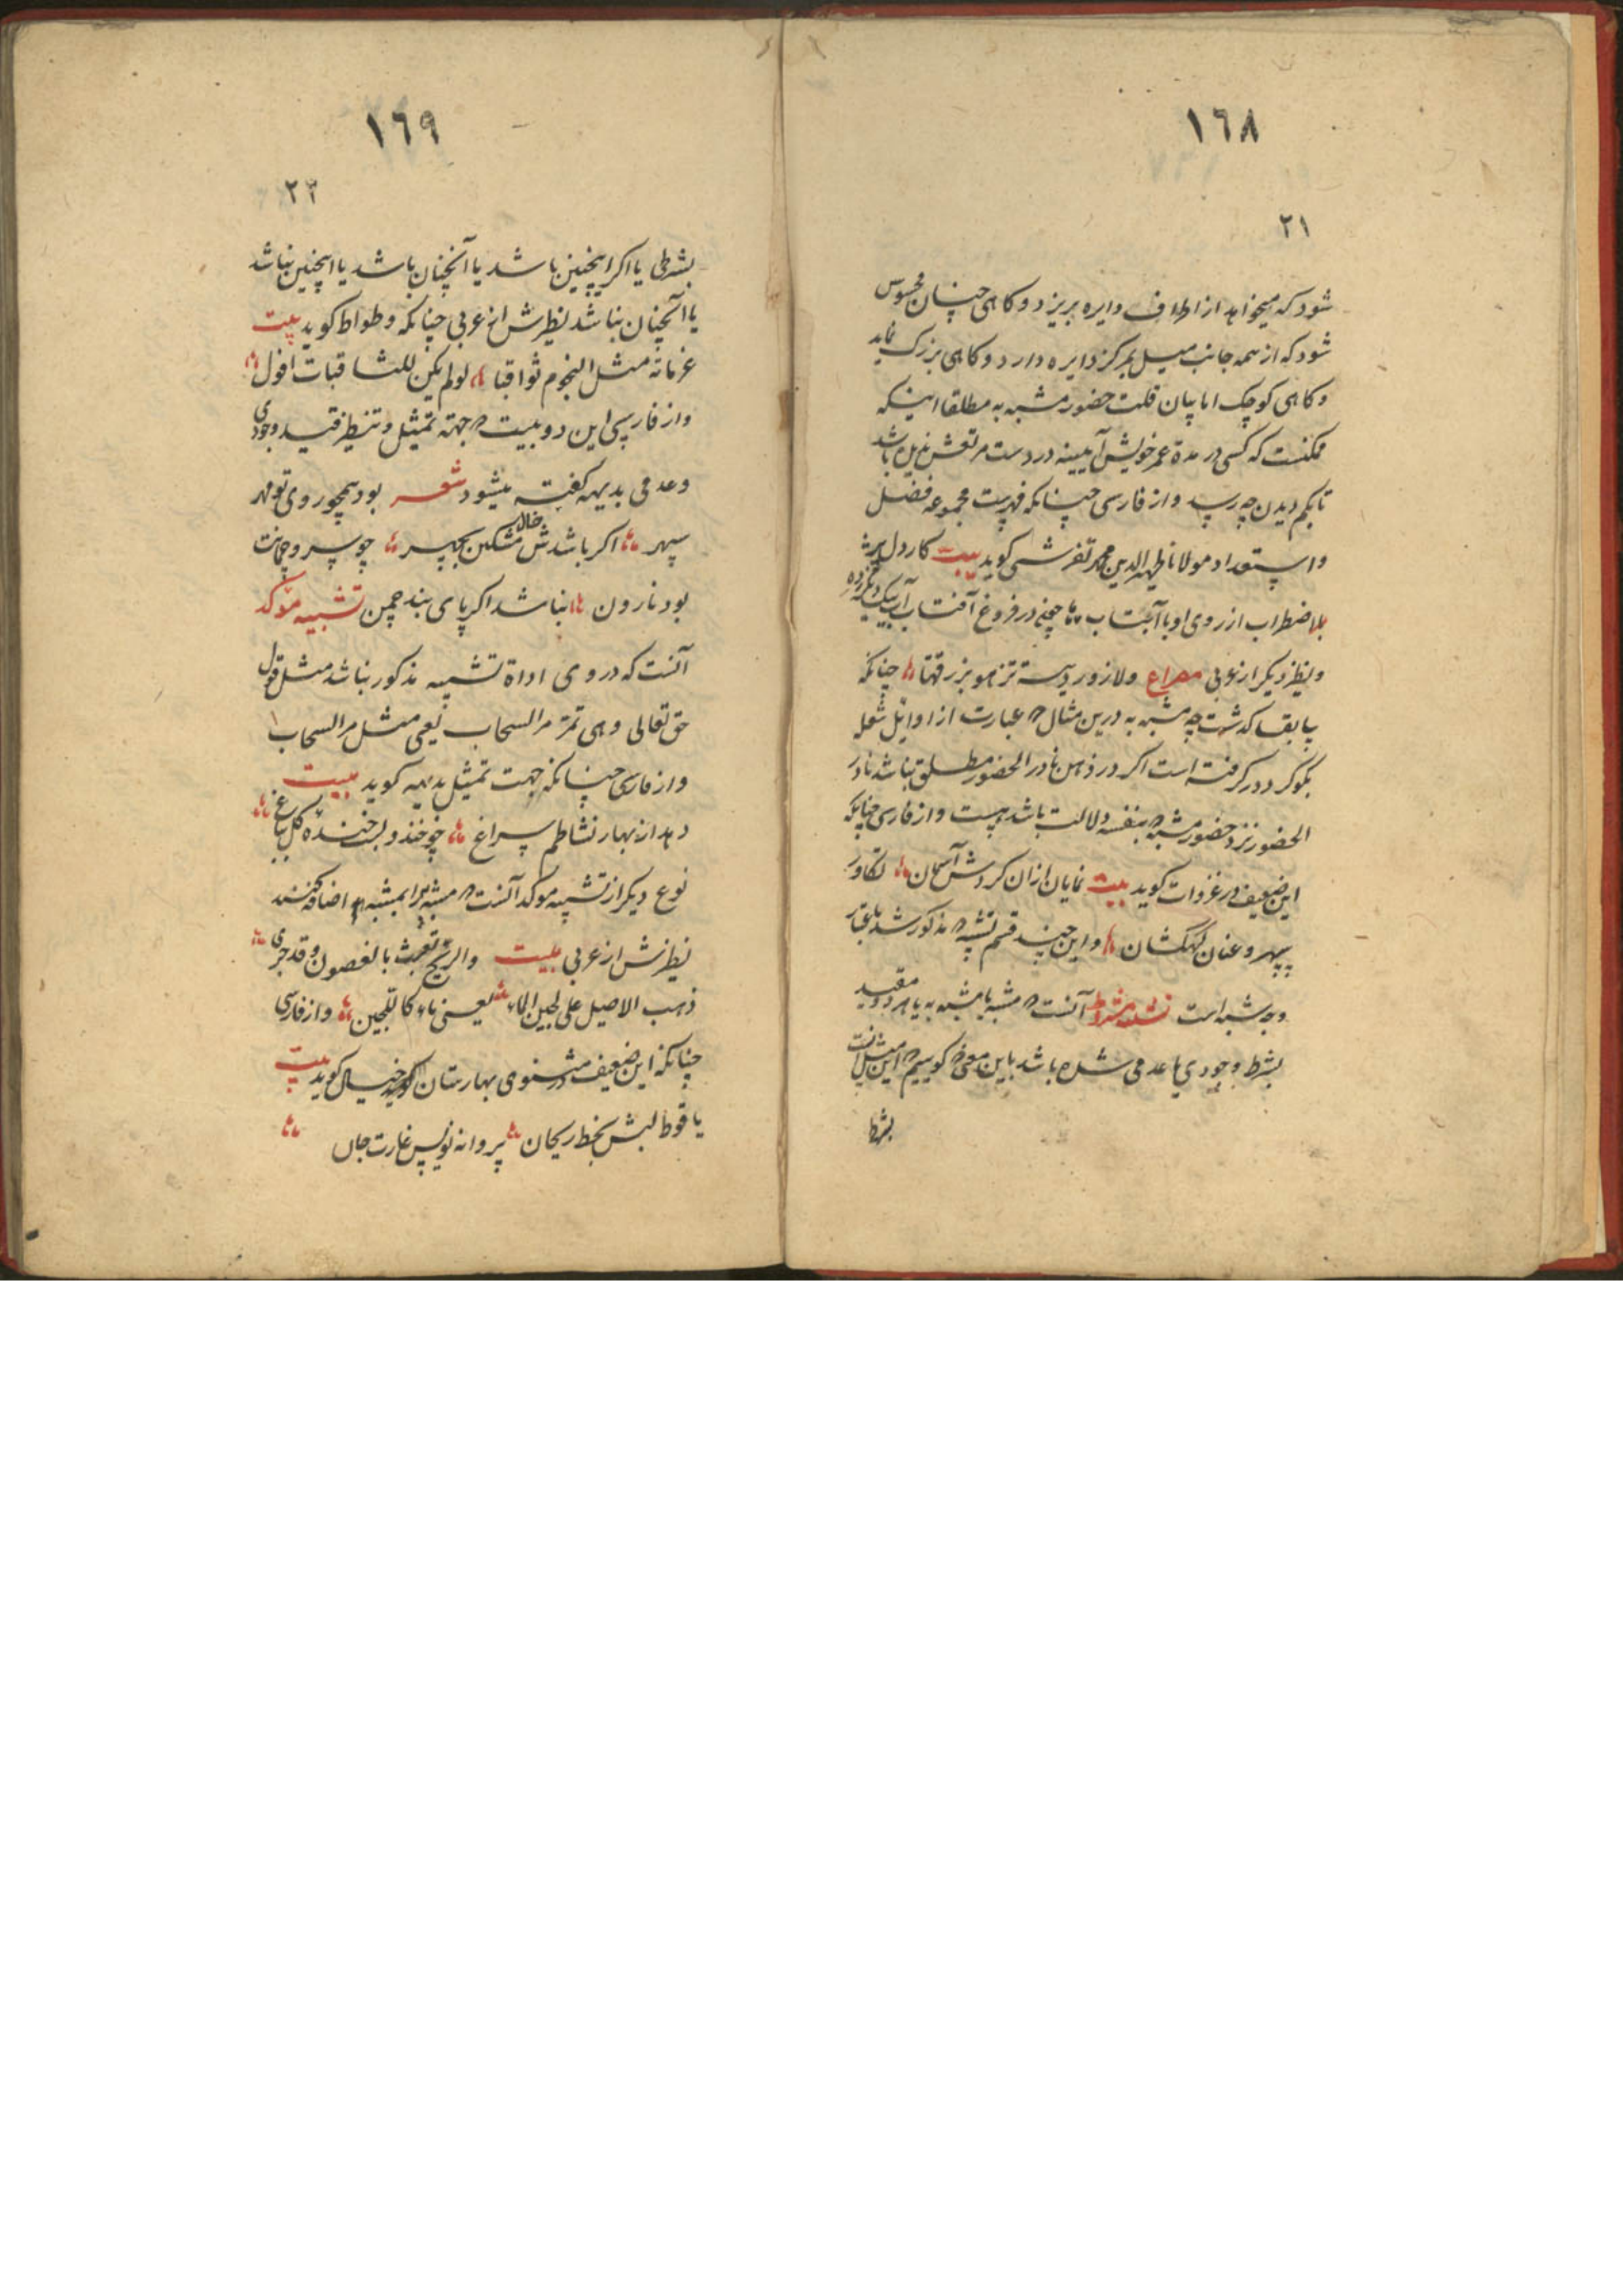 ١٦٨
٢١
شود که میخواهد از اطراف دایره بریزد و کاهی چنان محسوس
شود که از همه جانب میل بمرکز دایره دارد و کاهی بزرک نماید
و کاهی کوچک اما بیان قلت حضور مشبه به مطلقا اینکه
ممکنست که کسی در مدة عمر خویش آیینه در دست مرتعش ندیده باشد
تا بکم دیدن چه رسد و از فارسی چنانکه فهرست مجموعه فضل
و استعداد مولانا ظهیر الدین محمد تفرشی کوید بیت کار دل
بلا اضطراب از روی او با آب و تاب در فروغ آفتاب
و نظیر دیکر از عربی مصراع ولازوردیة تزهو بزرقتها چنانکه
سابقا کذشت چه مشبه به درین مثال که عبارت از اوایل شعله
بکوکرد در کرفته است اکر در ذهن نادر الحضور مطلق نباشد نادر
الحضور نزد حضور مشبه که بنفسه و لالت باشد هست و از فارسی چنانکه
این ضعیف در غزوات کوید بیت نمایان ازان کردش آسمان تکاور
سپهر و عنان کهکشان و این چند قسم تشبیه که مذکور شد باعتبار
وجه شبه است تشبیه مشروط آنست که مشبه یا مشبه به یا هر دو مقید
بشرط وجودی یا عدمی شده باشد باین معنی که کوییم که این مثل آنست
بشرط
١٦٩
٢٢
بشرطی یا اکر اینچنین باشد یا آنچنان باشد یا اینچنین نباشد
یا آنچنان نباشد نظیرش از عربی چنانکه وطواط کوید بیت
عزماته مثل النجوم ثواقبا لو لم یکن للثاقبات افول
و از فارسی این دو بیت که جهته تمثیل و تنظیر قید وجودی
و عدمی بدیهه کفته میشود شعر بود همچو روی تو مهر
سپهر اکر باشدش خال مشکین بچهر چو سرو چمانت
بود نارون نباشد اکر پای بند چمن تشبیه مؤکد
آنست که در وی اداة تشبیه مذکور نباشد مثل قول
حق تعالی و هی تمر مر السحاب یعی مثل مر السحاب
و از فارسی چنانکه جهت تمثیل بدیهه کوید بیت
دهد از بهار نشاطم سراغ چو خندد لبت خندهٔ کل بباغ
نوع دیکر از تشبیه موکد آنست که مشبه به را بمشبه اضافه کنند
نظیرش از عربی بیت والریح تعبث بالغصون وقد جری
ذهب الاصیل علی لجین الماء یعنی ماء کاللجین و از فارسی
چنانکه این ضعیف در مثنوی بهارستان خیال کوید بیت
یاقوط لبش بخط ریحان پروانه نویس غارت جان